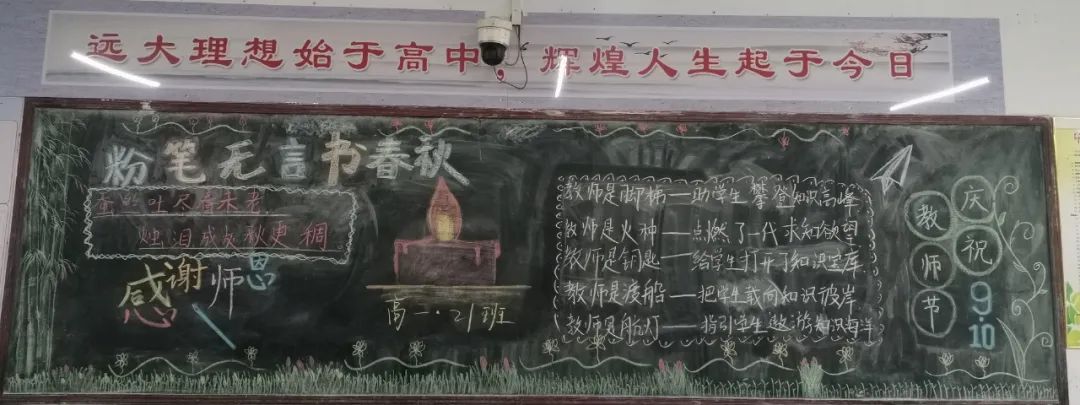 远大理想始于高中，辉煌人生起于今日
粉笔无言书春秋
蚕丝吐尽春未老
烛泪成灰秋更稠
感谢师恩
高一·21班
教师是脚梯——助学生攀登知识高峰
教师是火种——点燃了一代求知欲望
教师是钥匙——给学生打开了知识宝库
教师是渡船——把学生载向知识彼岸
教师是船灯——指引学生遨游知识海洋
庆祝
教师节
9
10